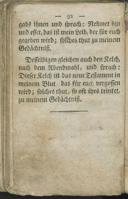 — 92 —
gabs ihnen und sprach: Nehmet hin
und esset, das ist mein Leib, der für euch
gegeben wird; solches thut zu meinem
Gedächtniß.
Desselbigen gleichen auch den Kelch,
nach dem Abendmahl, und sprach:
Dieser Kelch ist das neue Testament in
meinem Blut, das für euch vergossen
wird; solches thut, so oft ihrs trinket,
zu meinem Gedächtniß.